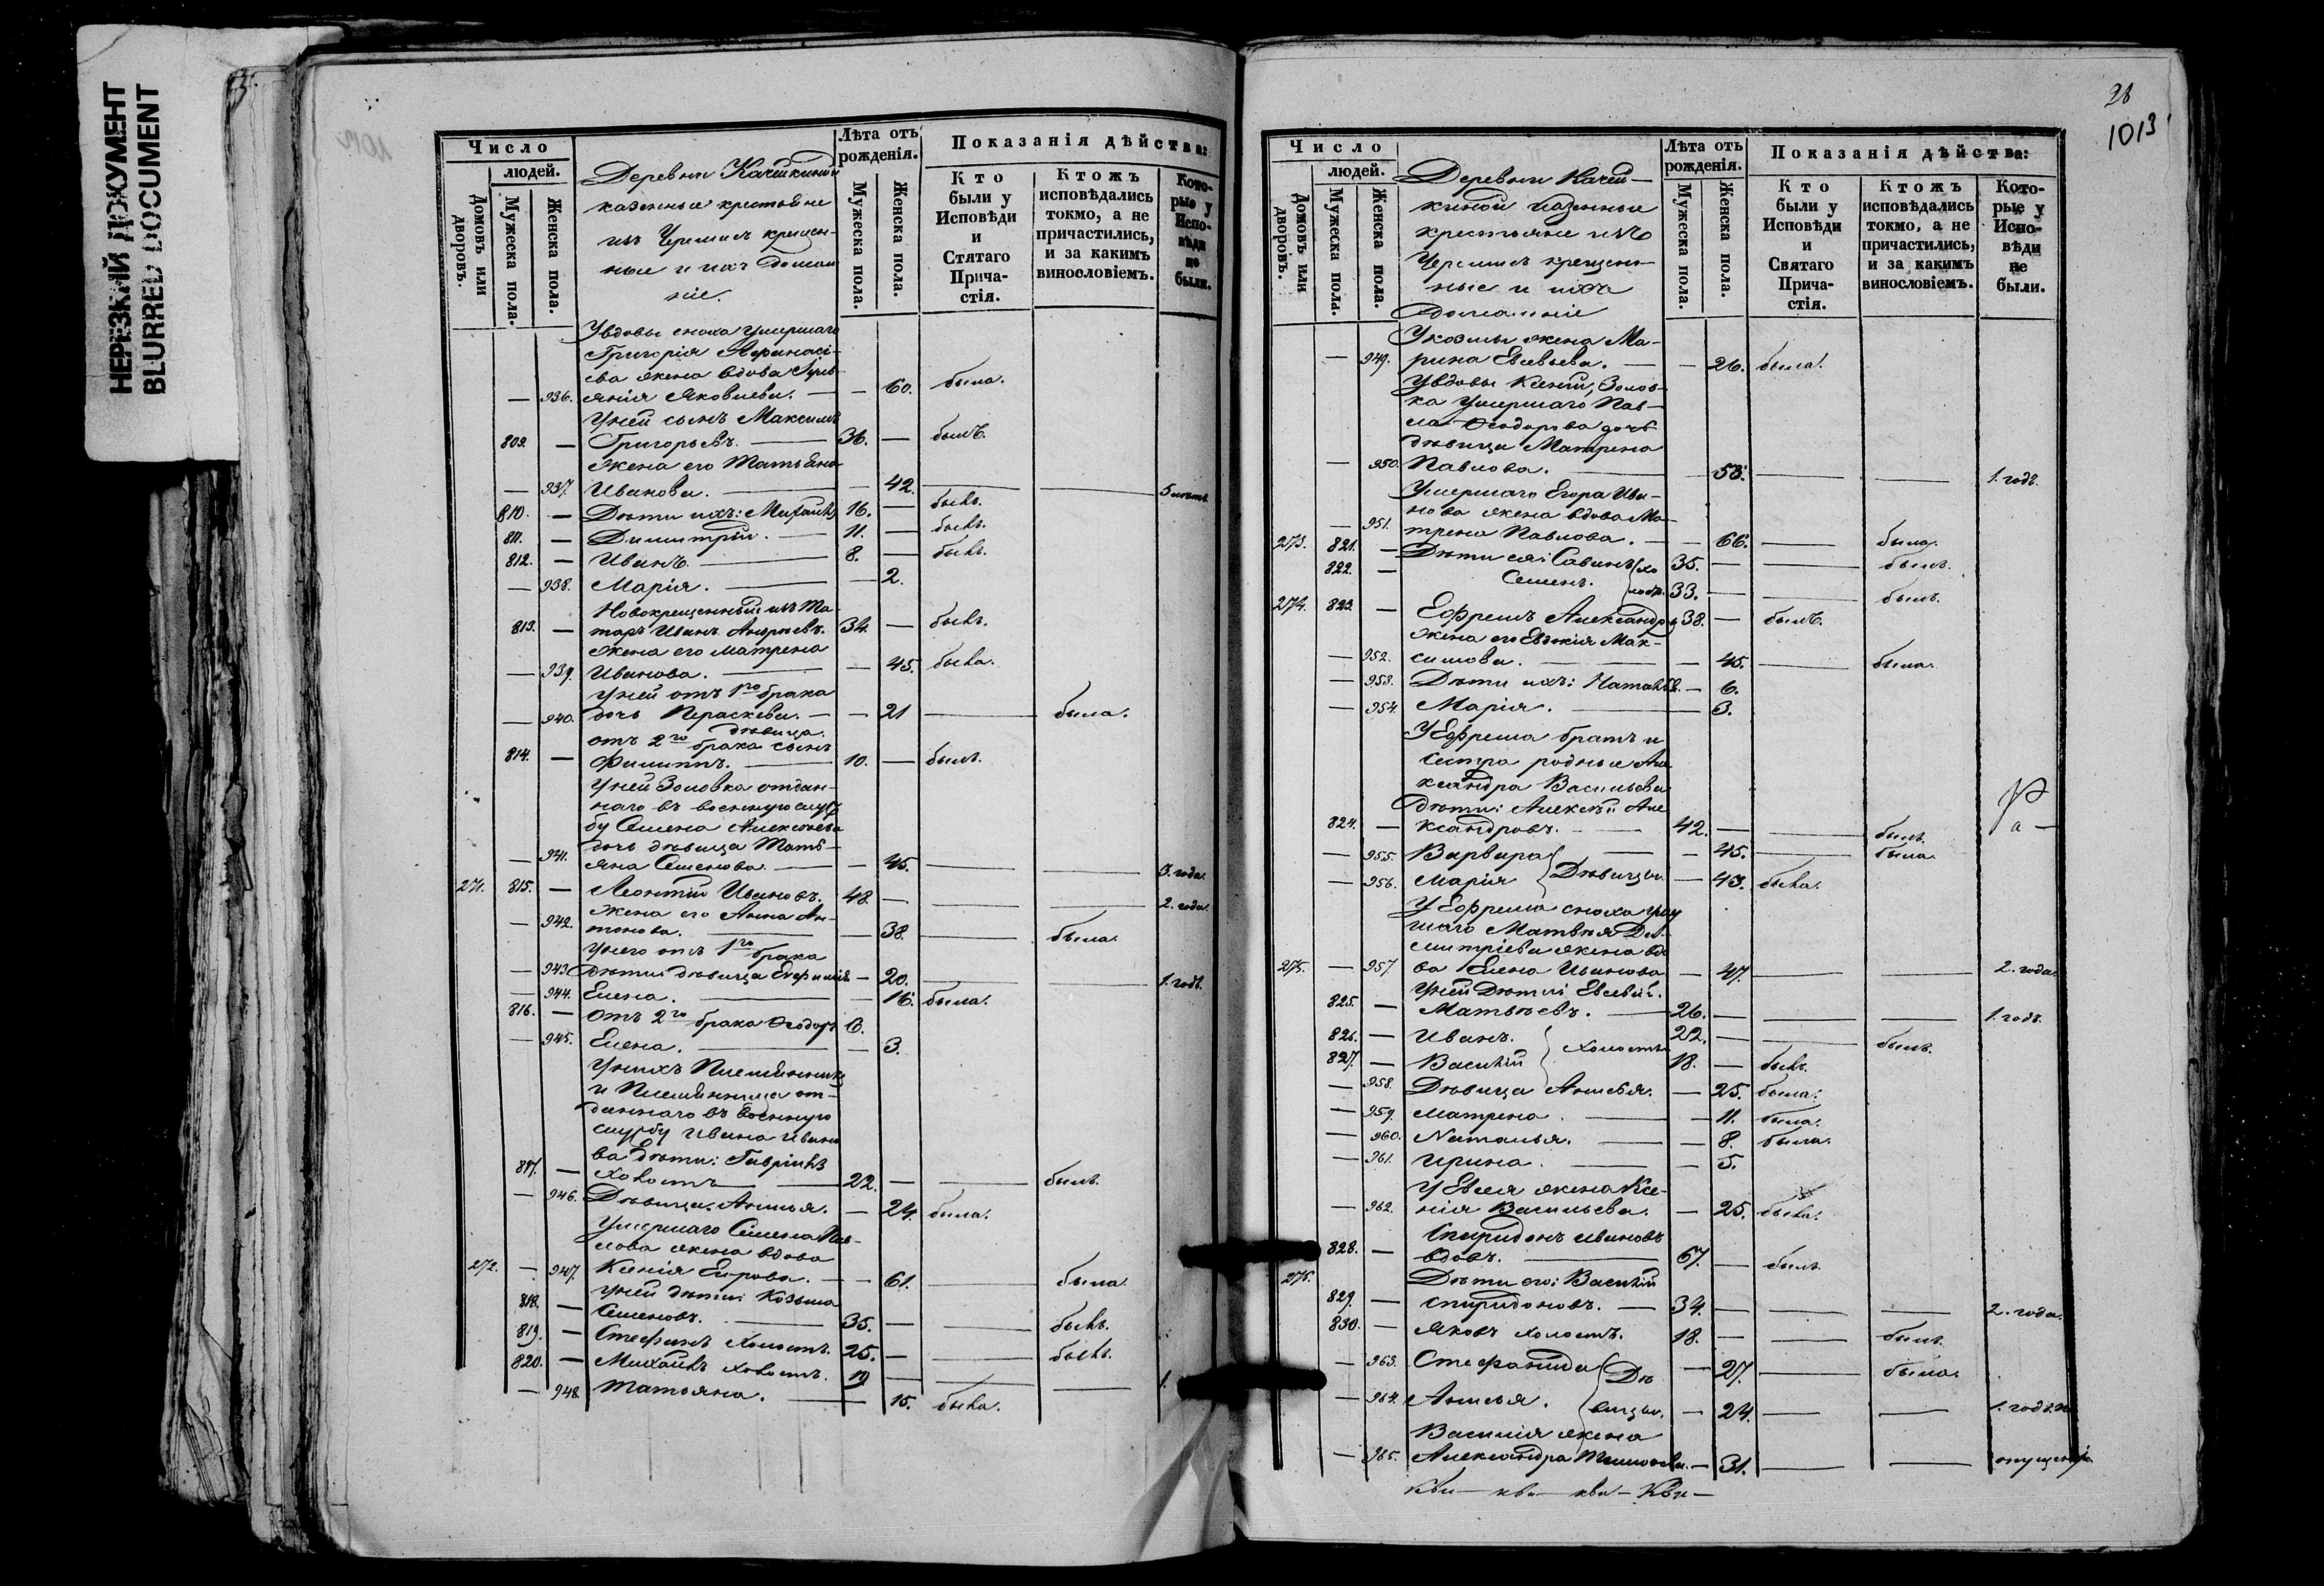 НЕРЕЗКИЙ ДОКУМЕНТ
BLURRED DOCUMENT
Число
людей.
Домовъ или дворовъ.
Мужеска пола.
Женска пола.
Деревни Качейкиной
казенные крестьяне
изъ Черемисъ крещен-
ные и ихъ домаш
ніе.
Лѣта отъ рожденія.
Мужеска пола.
Женска пола.
Показанія дѣйства:
Кто были у Исповѣди и Стятаго Прича-стія.
Ктожъ исповѣдались токмо, а не причастились, и за какимъ винословіемъ.
Кото-рые у Испо-вѣди не были.
У вдовы сноха умершаго
Григорія Афанасі-
ева жена вдова
— 936. Яковлева. — — 60. была.
У ней сынъ Максимъ
809. — Григорьевъ. — 36. — былъ.
жена его Татьяна
— 937. Иванова. — — 42. — — 5 лѣтъ.
810. — Дѣти ихъ: Михаилъ 16. — былъ.
811. — Димитрій. — 11. — былъ.
812. — Иванъ. — 8. — былъ.
— 938. Марія. — — 2.
Новокрещенный изъ Та-
813. — таръ Иванъ Андреевъ. 34. — былъ.
жена его Матрена
— 939. Иванова. — — 45. была.
У ней отъ 1го брака
— 940. дочь Параскева. — — 21 — была.
дѣвица.
отъ 2го брака сынъ
814. — Филиппъ. — 10. — былъ.
У ней Золовка отдан-
наго въ военную служ
бу Семена Алексѣева
— 941. дочь дѣвица Тать-
яна Семенова. — — 45. — — 3. года.
271. 815. — Леонтій Ивановъ. 48. — — — 2. года.
жена его Анна Ан-
— 942. тонова. — — 38. — была.
У него отъ 1го брака
— 943. дѣти: дѣвица Евфимія — 20. — — 1. годъ.
— 944. Елена. — — 16. была.
816. — отъ 2го брака Ѳеодоръ 6.
— 945. Елена. — — 3.
У нихъ Племянникъ
и Племянница от-
даннаго въ военную
службу Ивана Ивано
ва дѣти: Гавріилъ
817. — холостъ — 22. — — былъ.
— 946. Дѣвица, Анисья. — 24. была.
Умершаго Семена Пав-
лова жена вдова
272. — 947. Ксенія Егорова. — — 61. — была.
У ней дѣти: Козьма
818. — Семеновъ. — 35. — — былъ.
819. — Стефанъ холостъ. 25. — — былъ.
820. — Михаилъ холостъ. 19 — — — 1.
— 948. Татьяна. — — 15. была.
28
1013
Число
людей.
Домовъ или дворовъ.
Мужеска полa.
Женска пола.
Деревни Качей-
киной казенные
крестьяне изъ
Черемисъ крещен-
ные и ихъ
домашніе
Лѣта отъ рожденія.
Мужеска пола.
Женска пола.
Показанія дѣйства:
Кто были у Исповѣди и Святаго Прича-стія.
Ктожъ исповѣдались токмо, а не причастились, и за какимъ винословіемъ.
Кото-рые у Испо-вѣди не были.
У козьмы жена Ма-
— 949. рина Евсевьева. — — 26. была.
У вдовы Ксеніи, Золов-
ка умершаго Пав-
ла Ѳеодорова дочь
дѣвица Матрена
— 950. Павлова. — 58. — — 1. годъ.
Умершаго Егора Ива-
нова жена вдова Ма-
— 951. трена Павлова. — — 66. — была.
273. 821. — Дѣти ея: Савинъ хо 35. — — былъ.
822. — Семенъ. лосты. 33. — — былъ.
274. 823. — Ефремъ Александро 38. — былъ.
жена его Евдокія Мак-
— 952. симова. — — 45. — была.
— 953. Дѣти ихъ: Наталья. — 6.
— 954. Марія. — 3.
У Ефрема братъ и
сестра родные Але
ксандра Васильева
дѣти: Алексѣй Але
824. — ксандровъ. — 42. — — былъ.
— 955. Варвара — — 45. — была
— 956. Марія Дѣвицы. — 43. была.
У Ефрема сноха умер
шаго Матвѣя Ди-
митріева жена вдо
275. — 957. ва Елена Иванова — 47. — — 2. года.
У ней дѣти: Евсевій.
825. — Матвѣевъ. — 26. — — — 1. годъ.
826. — Иванъ. 22. — — былъ.
827. — Василій холосты 18. — былъ.
— 958. Дѣвица Анисья. — 25. была.
— 959. Матрена. — — 11. была.
— 960. Наталья. — — 8. была.
— 961. Ирина. — — 5.
У Евсея жена Ксе-
— 962. нія Васильева. — 25. была.
Спиридонъ Ивановъ
828. — вдовъ. — 67. — былъ.
275. Дѣти его: Василій
829. — Спиридоновъ. — 34. — — — 2. года.
830. — Яковъ холостъ. 18. — — былъ.
— 963. Стефанида Дѣ — 27. — была.
— 964. Анисья. вицы. — 24. — — 1. годъ.
Василія жена
— 965. Александра Тимоѳеева. — 31. — — опущен